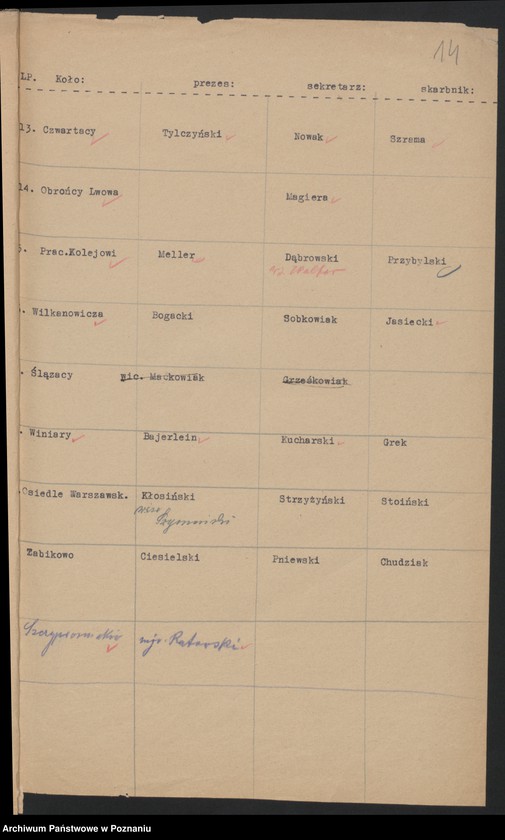 14
LP. Koło: prezes: sekretarz: skarbnik:
13. Czwartacy Tylczyński Nowak Szrama
14. Obrońcy Lwowa Magiera
5. Prac.Kolejowi Meller Dąbrowski Przybylski
. Wilkanowicza Bogacki Sobkowiak Jasiecki
. Ślązacy wic. Maćkowiak Grześkowiak
. Winiary Bajerlein Kucharski Grek
.Osiedle Warszawsk. Kłosiński Strzyżyński Stoiński
Żabikowo Ciesielski Pniewski Chudziak
mjr. Ratarski
Archiwum Państwowe w Poznaniu